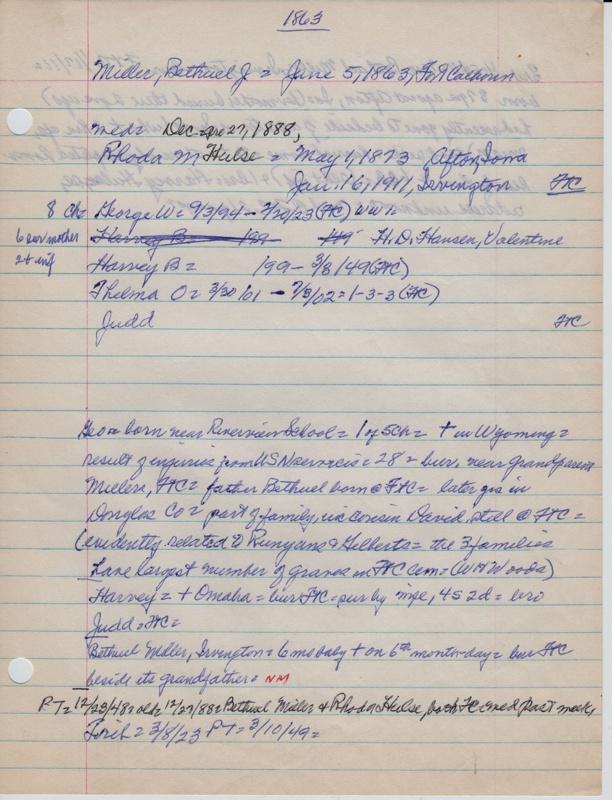 1863
Miller, Bethuel J = June 5, 1863, Ft Calhoun
med = Dec 27, 1888,
Rhoda M Hulse = May 1, 1873 Afton, Iowa
Jan. 16, 1911, Irvington FtC
8 Ch = George W = 9/3/94 - 2/20/23 (FtC) WW I
6 sur mother Harvey B = 199- H. D. Hansen, Valentine
2 + inf Harvey B = 199- 3/8/49 (FtC)
Thelma O = 3/30/01 - 7/3/02 = 1-3-3 (FtC)
Judd FtC
Geo = born near Riverview School = 1 of 5 Ch = + in Wyoming =
result of injuries from USN service = 28 = bur. near grandparents
Millers, FtC = father Bethuel born @ FtC = later grs in
Douglas Co = part of family, via cousin David, still @ FtC =
(evidently related to Runyans & Gilberts = the 3 families
have largest number of graves in FtC Cem = (WH Woods)
Harvey = + Omaha = bur FtC = sur by 4s 2d = bro
Judd = FtC =
Bethuel Miller, Irvington = 6 mo baby + on 6th month-day = bur FtC
beside its grandfather = NM
PT = 12/23/ old = 12/27/88 = Bethuel Miller & Rhoda Hulse, both FtC = med past week
Trib = 3/8/23 PT = 3/10/49 =